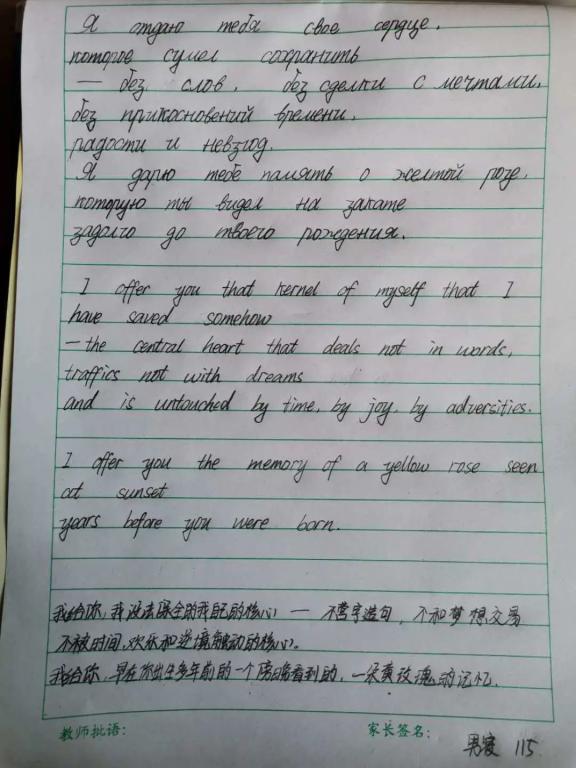 Я отдаю тебя свое сердце,
которое сумел сохранить
— без слов, без сделки с мечтами,
без прикосновений времени,
радости и невзгод.
Я дарю тебе память о желтой розе,
которую ты видел на закате
задолго до твоего рождения.
I offer you that kernel of myself that I
have saved somehow
— the central heart that deals not in words,
traffics not with dreams
and is untouched by time, by joy, by adversities.
I offer you the memory of a yellow rose seen
at sunset
years before you were born.
我给你,我设法保全的我自己的核心 — 不营字造句,不和梦想交易
不被时间,欢乐和逆境触动的核心。
我给你,早在你出生多年前的一个傍晚看到的,一朵黄玫瑰的记忆.
教师批语: 家长签名:
115